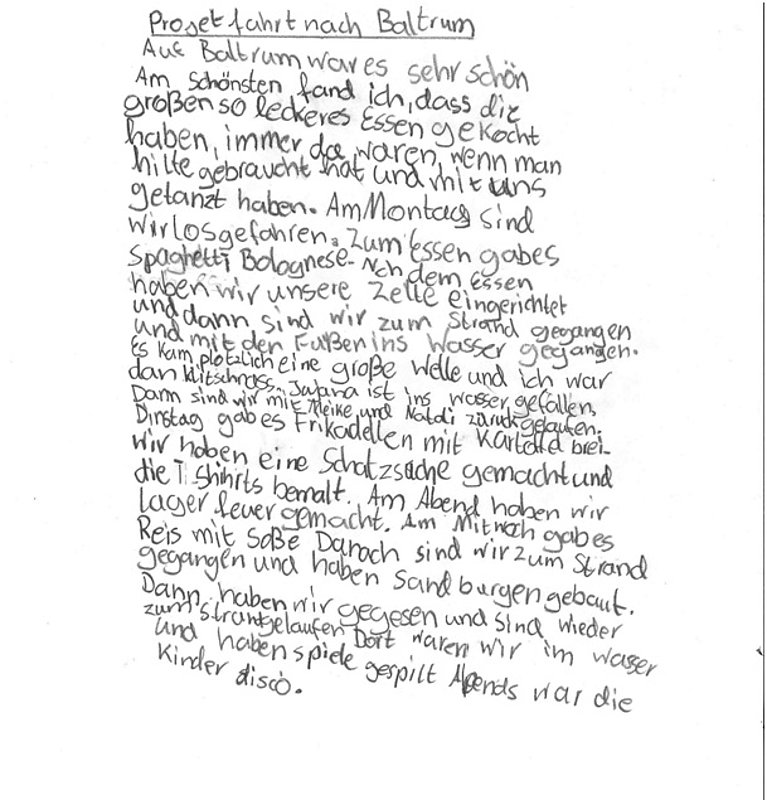 Projet fahrt nach Baltrum
Auf Baltrum war es sehr schön
Am schönsten fand ich, dass die
großen so leckeres Essen gekocht
haben, immer da waren, wenn man
hilfe gebraucht hat und mit uns
getanzt haben. Am Montag sind
wir losgefahren. Zum Essen gabes
Spaghetti Bolognese. Nch dem essen
haben wir unsere Zelte eingerichtet
und dann sind wir zum Strand gegangen
und mit den Fußen ins Wasser gegangen.
Es kam plötzlich eine große Welle und ich war
dan klitschnass. ist ins wasser gefallen.
Dann sind wir mit Meike und zurückgelaufen.
Dinstag gab es Frikadellen mit Kartoffel brei.
wir haben eine Schatzsuche gemacht und
die T-Shihrts bemalt. Am Abend haben wir
lager feuer gemacht. Am Mitwoch gabes
Reis mit Soße Danach sind wir zum Strand
gegangen und haben Sand burgen gebaut.
Dann haben wir gegesen und sind wieder
zum strantgelaufen Dort waren wir im wasser
und haben spiele gespilt Abends war die
Kinder disco.